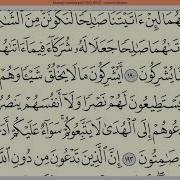 هُمَا لَئِنْ ءَاتَيْتَنَا صَٰلِحًا لَّنَكُونَنَّ مِنَ الشَّ
تَىٰهُمَا صَٰلِحًا جَعَلَا لَهُۥ شُرَكَآءَ فِيمَآ ءَاتَىٰهُمَا
يُشْرِكُونَ ١٩٠ أَيُشْرِكُونَ مَا لَا يَخْلُقُ شَيْـًٔا وَهُمْ
يَسْتَطِيعُونَ لَهُمْ نَصْرًا وَلَآ أَنفُسَهُمْ يَنصُرُ
عُوهُمْ إِلَى الْهُدَىٰ لَا يَتَّبِعُوكُمْ سَوَآءٌ عَلَيْكُمْ أَدَ
صَٰمِتُونَ ١٩٣ إِنَّ الَّذِينَ تَدْعُونَ مِن دُونِ اللَّهِ